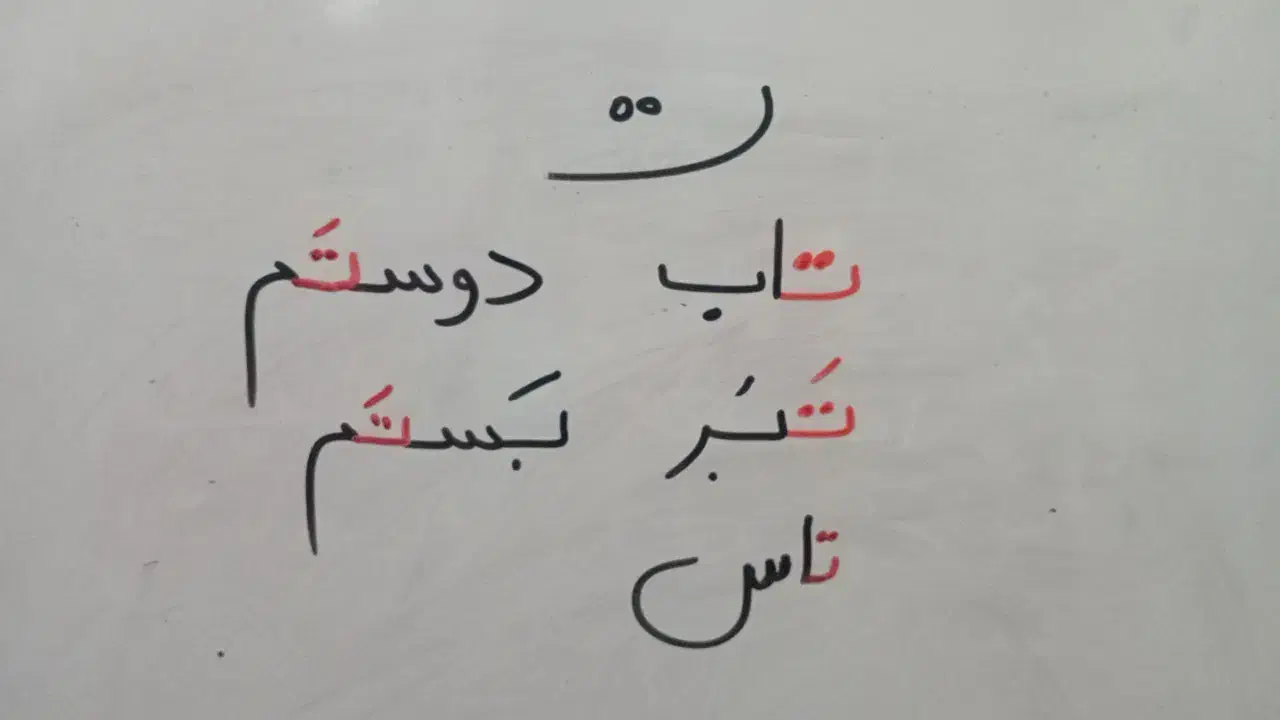 ت
تاب دوستَم
تَبَر بَستَم
تاس